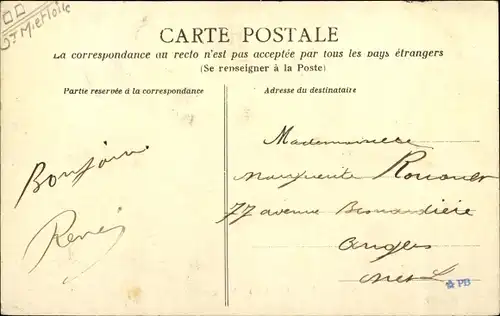 CARTE POSTALE
La correspondance au recto n'est pas acceptée par tous les pays étrangers
(Se renseigner à la Poste)
Partie reservée à la correspondance
Adresse du destinataire
Bonjour
René
Mademoiselle
Marguerite
77 avenue
Angers
PB